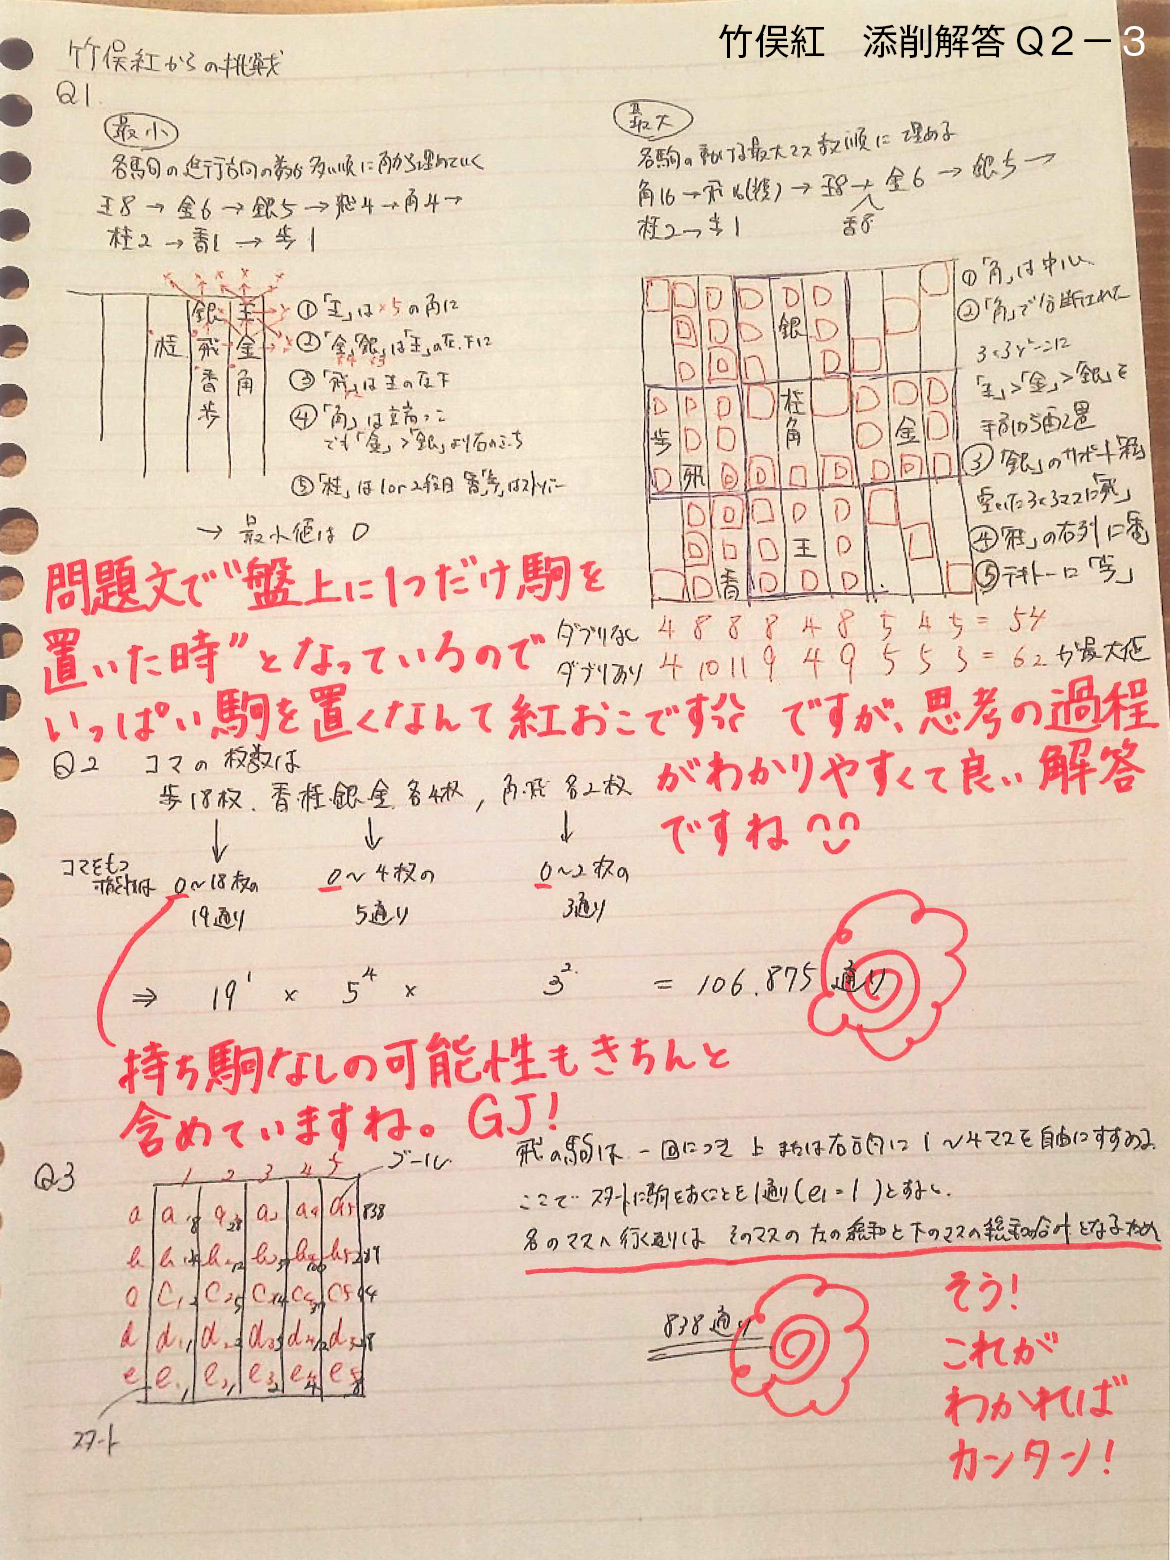 竹俣紅　添削解答Q2－3
竹俣紅からの挑戦
Q1.
最小
各駒の進行方向の数が多い順に角から埋めていく
王8→金6→銀5→飛4→角4→
桂2→香1→歩1
銀 王
桂 飛 金
香 角
歩
①「王」は×5の角に
②「金」「銀」は「王」の左、下に
③「飛」は王の左下
④「角」は
でも「金」>「銀」より右の
⑤「桂」は1or2段目
→ 最小値は0
最大
各駒の動ける最大マス数順に埋める
角16→飛16(接)→王8→金6→銀5→
香8
桂2→歩1
銀
桂
歩 角 金
飛
王
香
①「角」は中心
②「角」で分断された
3×3マスに
「王」>「金」>「銀」を
③「銀」のサポート
空いた3×3マスに「飛」
④「飛」の右列に香
⑤テキトーに「歩」
ダブりなし 4 8 8 8 4 8 5 4 5 = 54
ダブりあり 4 10 11 9 4 9 5 5 5 = 62 が最大値
問題文で“盤上に1つだけ駒を
置いた時”となっているので
いっぱい駒を置くなんて紅おこです ですが、思考の過程
がわかりやすくて良い解答
ですね
Q2 コマの枚数は
歩18枚、香・桂・銀・金 各4枚，角・飛 各2枚
コマをもつ
可能性は
0～18枚の 0～4枚の 0～2枚の
19通り 5通り 3通り
⇒ 19¹ × 5⁴ × 3² = 106.875 通り
持ち駒なしの可能性もきちんと
含めていますね。GJ！
Q3
1 2 3 4 5 ゴール
a a₁ 8 a₂ 28 a₃ a₄ a₅ 838
b b₁ b₂ 12 b₃ b₄ b₅ 289
c c₁ 2 c₂ 5 c₃ 14 c₄ 37 c₅ 94
d d₁ 1 d₂ 2 d₃ 5 d₄ 12 d₅ 28
e e₁ 1 e₂ 1 e₃ 2 e₄ 4 e₅ 8
スタート
飛の駒は、一回につき 上または右方向に1～4マスを自由にすすめる
ここで スタートに駒をおくことを1通り(e₁=1)とすると、
各のマスへ行く通りは そのマスの左の総和と下のマスの総和の合計となるため
838通り
そう！
これが
わかれば
カンタン！